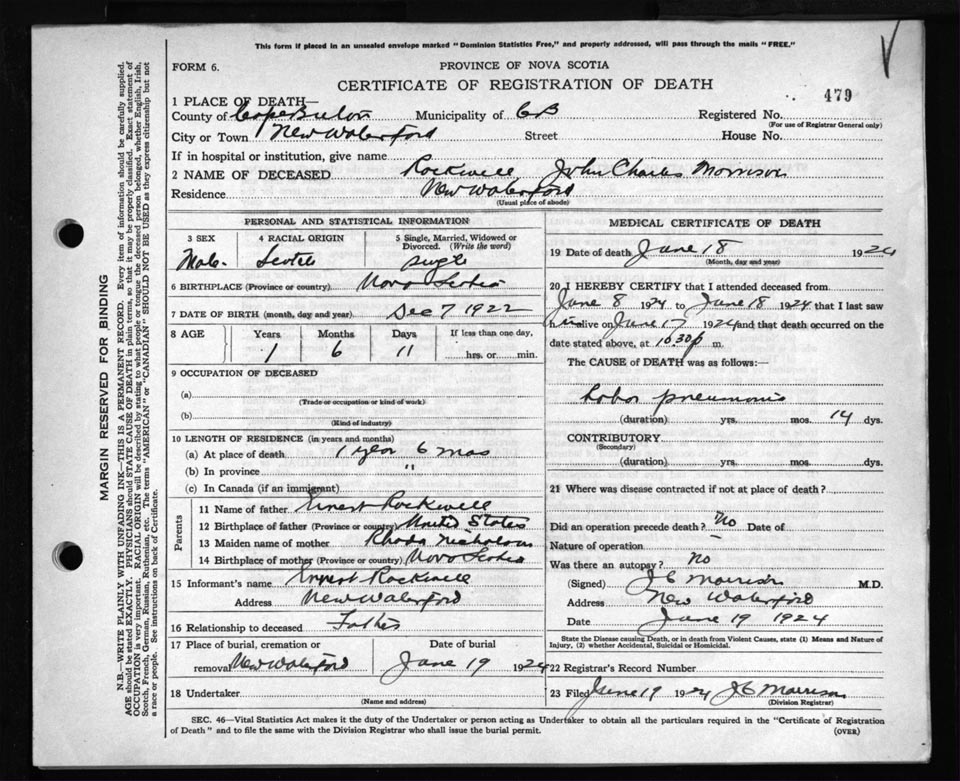 This form if placed in an unsealed envelope marked "Dominion Statistics Free," and properly addressed, will pass through the mails "FREE."
FORM 6.
PROVINCE OF NOVA SCOTIA
CERTIFICATE OF REGISTRATION OF DEATH
479
1 PLACE OF DEATH—
County of Cape Breton Municipality of CB Registered No.
(For use of Registrar General only)
City or Town New Waterford Street House No.
If in hospital or institution, give name
2 NAME OF DECEASED Rockwell John Charles Morrison
Residence New Waterford
(Usual place of abode)
PERSONAL AND STATISTICAL INFORMATION
3 SEX 4 RACIAL ORIGIN 5 Single, Married, Widowed or Divorced. (Write the word)
Male Scotch Single
6 BIRTHPLACE (Province or country) Nova Scotia
7 DATE OF BIRTH (month, day and year) Dec 7 1922
8 AGE Years Months Days If less than one day,
1 6 11 hrs. or min.
9 OCCUPATION OF DECEASED
(a)
(Trade or occupation or kind of work)
(b)
(Kind of industry)
10 LENGTH OF RESIDENCE (in years and months)
(a) At place of death 1 year 6 mos
(b) In province "
(c) In Canada (if an immigrant)
Parents
11 Name of father Ernest Rockwell
12 Birthplace of father (Province or country) United States
13 Maiden name of mother Rhoda Nicholson
14 Birthplace of mother (Province or country) Nova Scotia
15 Informant's name Ernest Rockwell
Address New Waterford
16 Relationship to deceased Father
17 Place of burial, cremation or removal New Waterford Date of burial June 19 1924
18 Undertaker
(Name and address)
MEDICAL CERTIFICATE OF DEATH
19 Date of death June 18 1924
(Month, day and year)
20 I HEREBY CERTIFY that I attended deceased from
June 8 1924 to June 18 1924 that I last saw
him alive on June 17 1924 and that death occurred on the
date stated above, at 10.30 p m.
The CAUSE of DEATH was as follows:—
Lobar pneumonia
(duration) yrs. mos. 14 dys.
CONTRIBUTORY
(Secondary)
(duration) yrs. mos. dys.
21 Where was disease contracted if not at place of death?
Did an operation precede death? No Date of
Nature of operation —
Was there an autopsy? No
(Signed) J C Morrison M.D.
Address New Waterford
Date June 19 1924
State the Disease causing Death, or in death from Violent Causes, state (1) Means and Nature of
Injury, (2) whether Accidental, Suicidal or Homicidal.
22 Registrar's Record Number
23 Filed June 19 1924 J C Morrison
(Division Registrar)
SEC. 46—Vital Statistics Act makes it the duty of the Undertaker or person acting as Undertaker to obtain all the particulars required in the "Certificate of Registration
of Death" and to file the same with the Division Registrar who shall issue the burial permit.
(OVER)
MARGIN RESERVED FOR BINDING
N.B.—WRITE PLAINLY WITH UNFADING INK—THIS IS A PERMANENT RECORD. Every item of information should be carefully supplied.
AGE should be stated EXACTLY. PHYSICIANS should STATE CAUSE OF DEATH in plain terms, so that it may be properly classified. Exact statement of
OCCUPATION is very important. RACIAL ORIGIN will be described by stating to what people or tongue the deceased person belonged, whether English, Irish,
Scotch, French, German, Russian, Ruthenian, etc. The terms "AMERICAN" or "CANADIAN" SHOULD NOT BE USED as they express citizenship but not
a race or people. See instructions on back of Certificate.